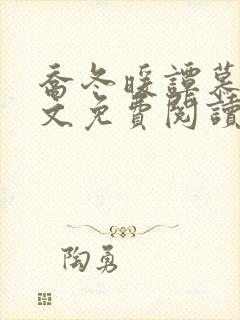 喬冬暖譚慕
文免費閱讀
陶勇